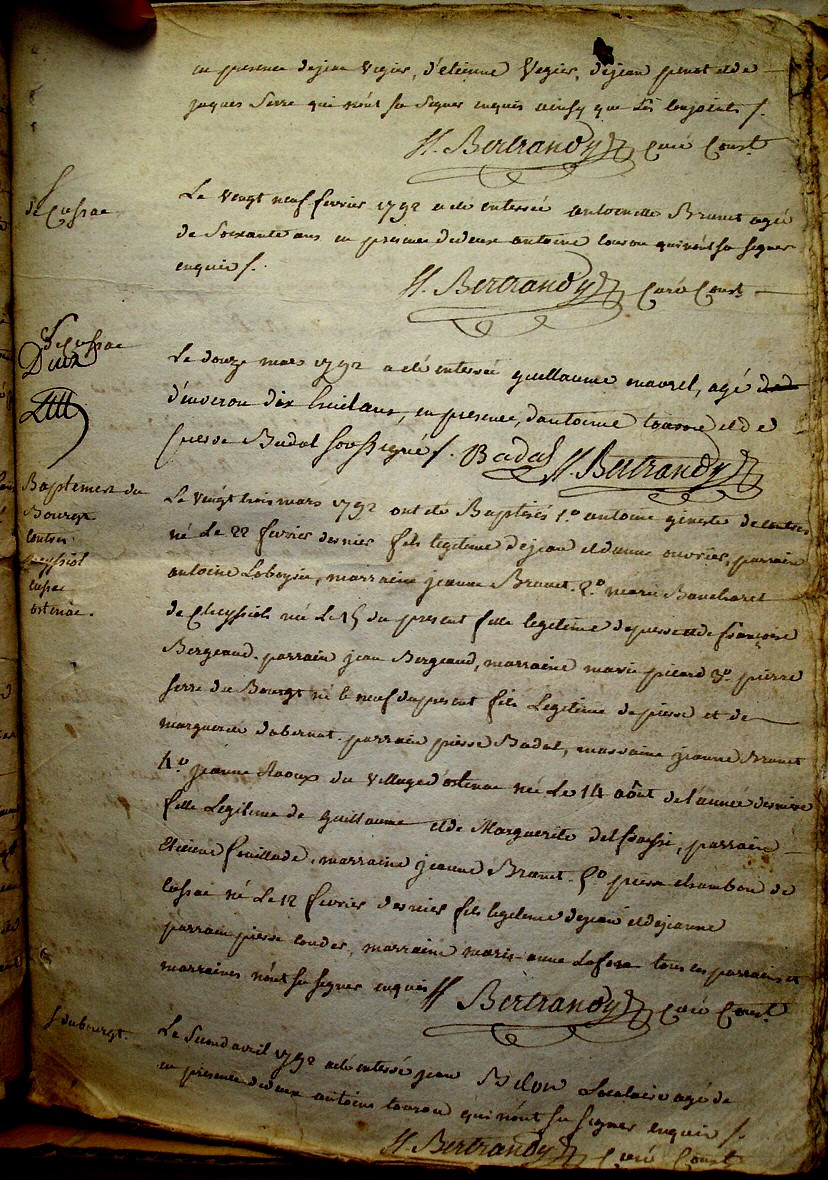 en presence de jean Vigier, d'etienne Vegier, de jean penot et de
jaques Serre qui n'ont su signer enquis ainsy que les conjoints /.
H. Bertrandy Curé Const.
S
de Cussac
Le vengt neuf fevrier 1792 a eté enterrée antoinette Brunet agée
de Soixante ans en presence de deux antoine touron qui n'ont su signer
enquis /.
H. Bertrandy Curé Const.
S de Cussac
Deux
Le douze mars 1792 a eté enterré guillaume maurel, agé
d'environ dix huit ans, en presence, d'antoine touron et de
pierre Badal soussigné /. Badal H. Bertrandy
Baptemes du
Bourgt
contres
cheyssiol
Cussac
ostenac.
Le vengt trois mars 1792 ont eté Baptisés 1.° antoine geneste de contres
né Le 22 fevrier dernier fils legitime de jean et d'anne ouvrier, parrain
antoine Laboysse, marraine jeanne Brunet. 2.° marie Bancharel
de Cheyssiols née Le 15 du present fille legitime de pierre et de françoise
Bergeaud. parrain jean Bergeaud, marraine marie picard 3.° pierre
serre du Bourgt né le neuf du present fils Legitime de pierre et de
marguerite dabernat. parrain pierre Badal, marraine jeanne Brunet
4.° jeanne Raoux du village d'ostenac née Le 14 aôut de l'année derniere
fille Legitime de guillaume et de Marguerite delfraissi, parrain
Etienne fouillade, marraine jeanne Brunet. 5.° pierre chambon de
Cussac né Le 12 fevrier dernier fils legitime de jean et de jeanne
parrain pierre couder, marraine marie-anne Lafon tous les parrains et
marraines n'ont su signer enquis H. Bertrandy Curé Const.
S du bourgt.
Le Second avril 1792 a eté enterré jean Bilou Locataire agé de
en presence de deux antoine touron qui n'ont su signer enquis /.
H. Bertrandy Curé Const.